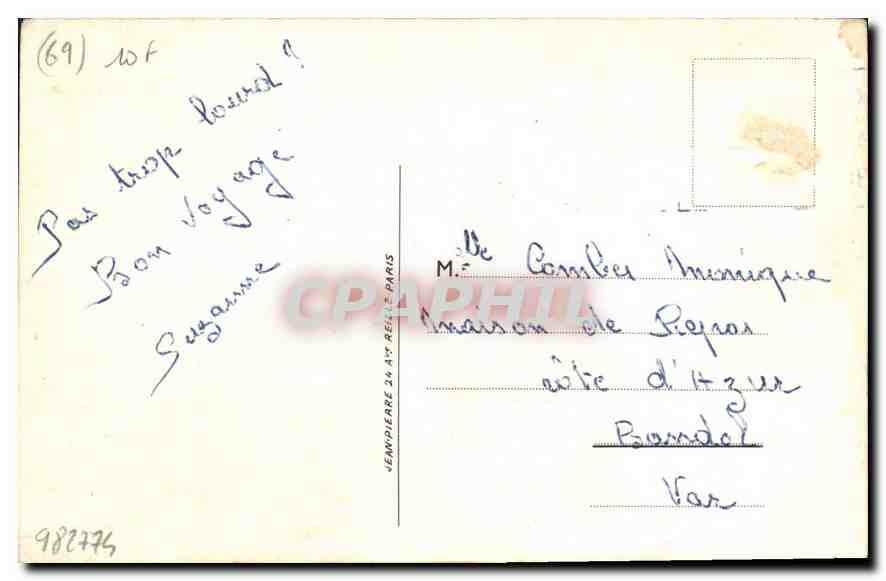 (69) 10F
Pas trop lourd ?
Bon Voyage
Suzanne
982774
JEAN-PIERRE 24 Ave REILLE PARIS
CPAPHIL
M.lle Combes Monique
Maison de Repos
Côte d'Azur
Bandol
Var